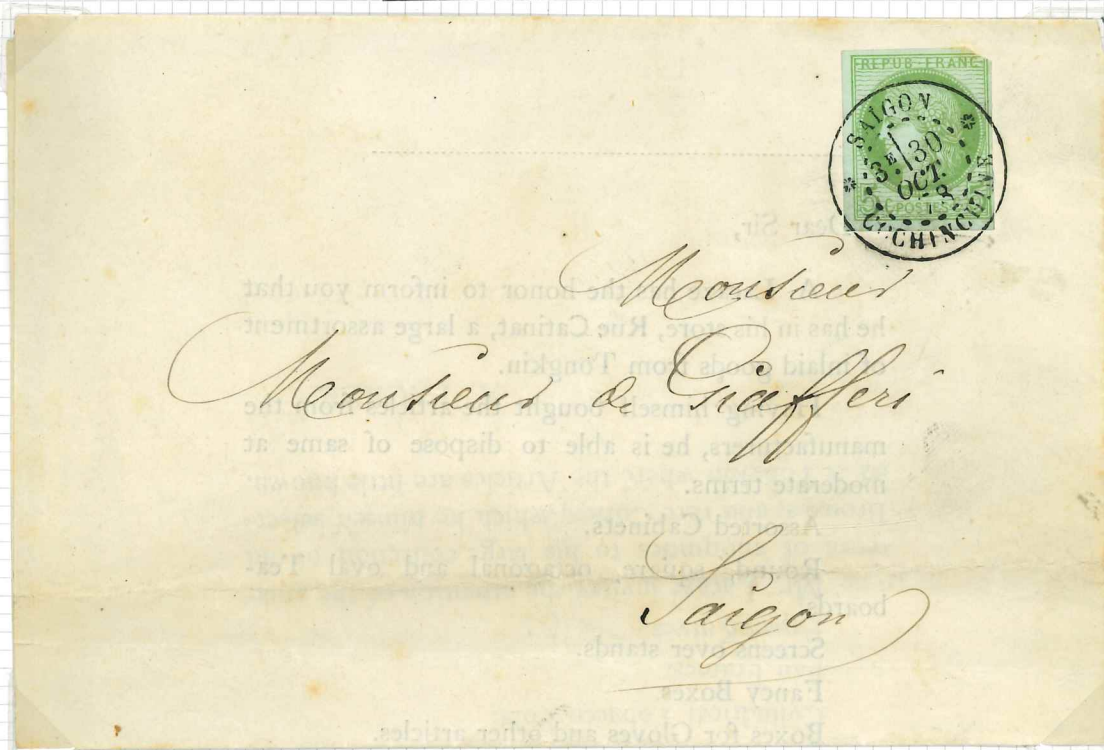 REPUB. FRANC
SAIGON
3E 30
OCT.
73
COCHINCHINE
POSTES
Monsieur
Monsieur de Giafferi
Saigon
Dear Sir,
has the honor to inform you that
he has in his store, Rue Catinat, a large assortment
of inlaid goods from Tongkin.
Having himself bought the articles from the
manufacturers, he is able to dispose of same at
moderate terms.
Assorted Cabinets.
Round, square, octagonal and oval Tea-
boards.
Screens over stands.
Fancy Boxes.
Boxes for Gloves and other articles.